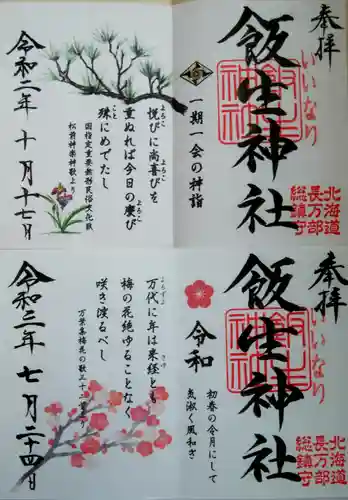 奉拝
いいなり
飯生神社
北海道
長万部
総鎮守
一期一会の神詣
悦びに尚喜びを
重ぬれば今日の慶び
殊にめでたし
国指定重要無形民俗文化財
松前神楽神歌より
令和二年十月十七日
奉拝
いいなり
飯生神社
北海道
長万部
総鎮守
令和
初春の令月にして
気淑く風和ぎ
万代に年は来経とも
梅の花絶ゆることなく
咲き渡るべし
万葉集梅花の歌三十二首より
令和三年七月二十四日